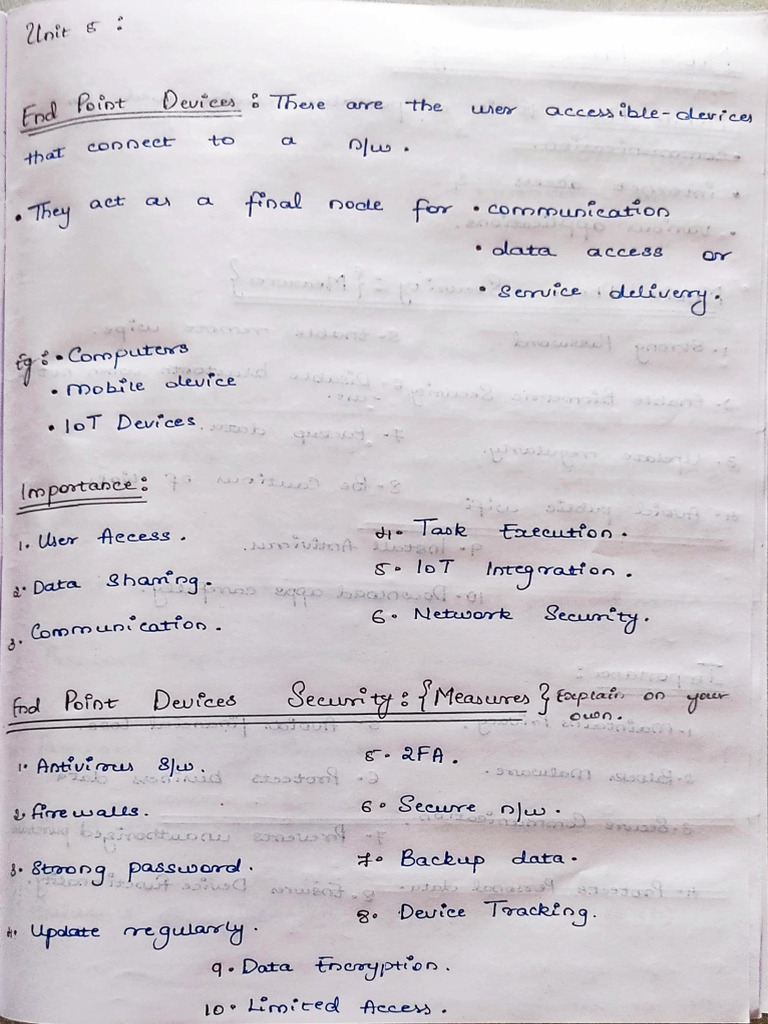 Unit 5 :
End Point Devices : These are the user accessible-devices
that connect to a n/w.
• They act as a final node for • communication
• data access or
• service delivery.
Eg : • Computers
• Mobile device
• IoT Devices.
Importance :
1. User Access.
2. Data Sharing.
3. Communication.
4. Task Execution.
5. IoT Integration.
6. Network Security.
End Point Devices Security : {Measures} Explain on your
own.
1. Antivirus S/w.
2. Firewalls.
3. Strong password.
4. Update regularly.
5. 2FA.
6. Secure n/w.
7. Backup data.
8. Device Tracking.
9. Data Encryption.
10. Limited Access.